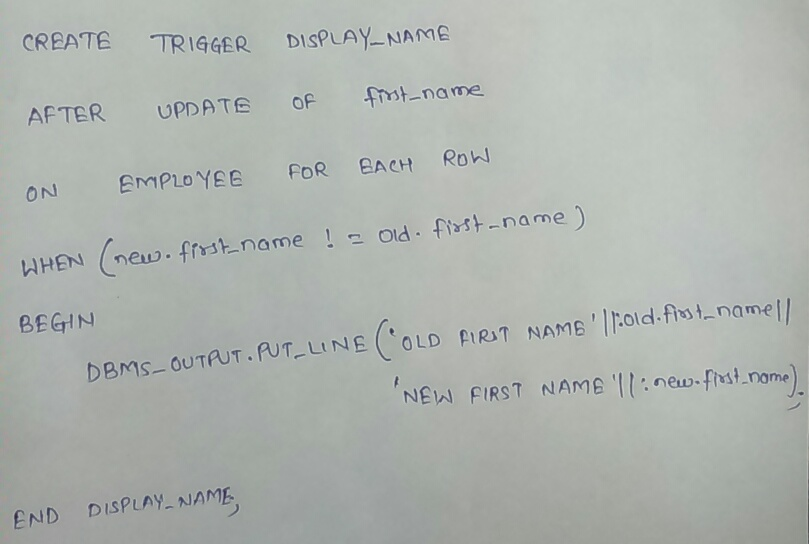 CREATE TRIGGER DISPLAY_NAME
AFTER UPDATE OF first_name
ON EMPLOYEE FOR EACH ROW
WHEN (new.first_name != old.first_name)
BEGIN
DBMS_OUTPUT.PUT_LINE('OLD FIRST NAME'||:old.first_name||
'NEW FIRST NAME'||:new.first_name);
END DISPLAY_NAME;